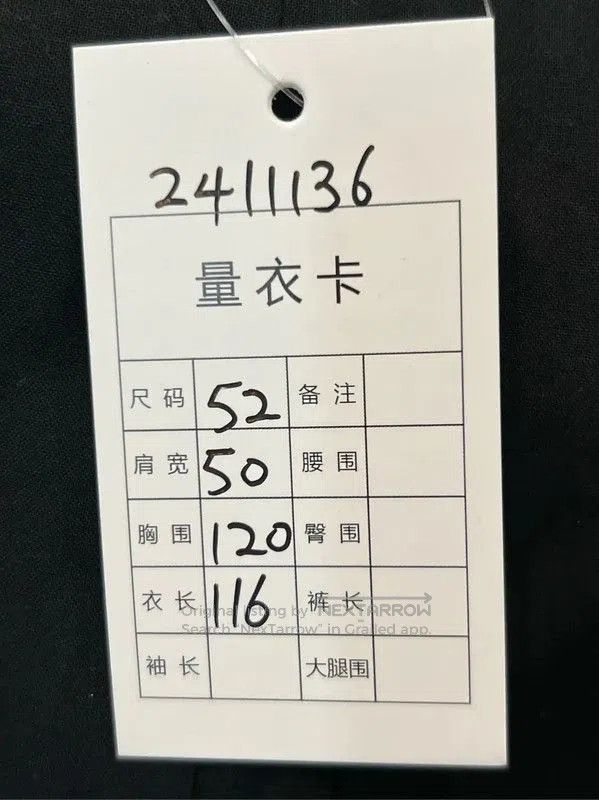 2411136
量衣卡
尺码 52 备注
肩宽 50 腰围
胸围 120 臀围
衣长 116 裤长
Original listing by NEXTARROW
Search "NexTarrow" in Grailed app.
袖长 大腿围